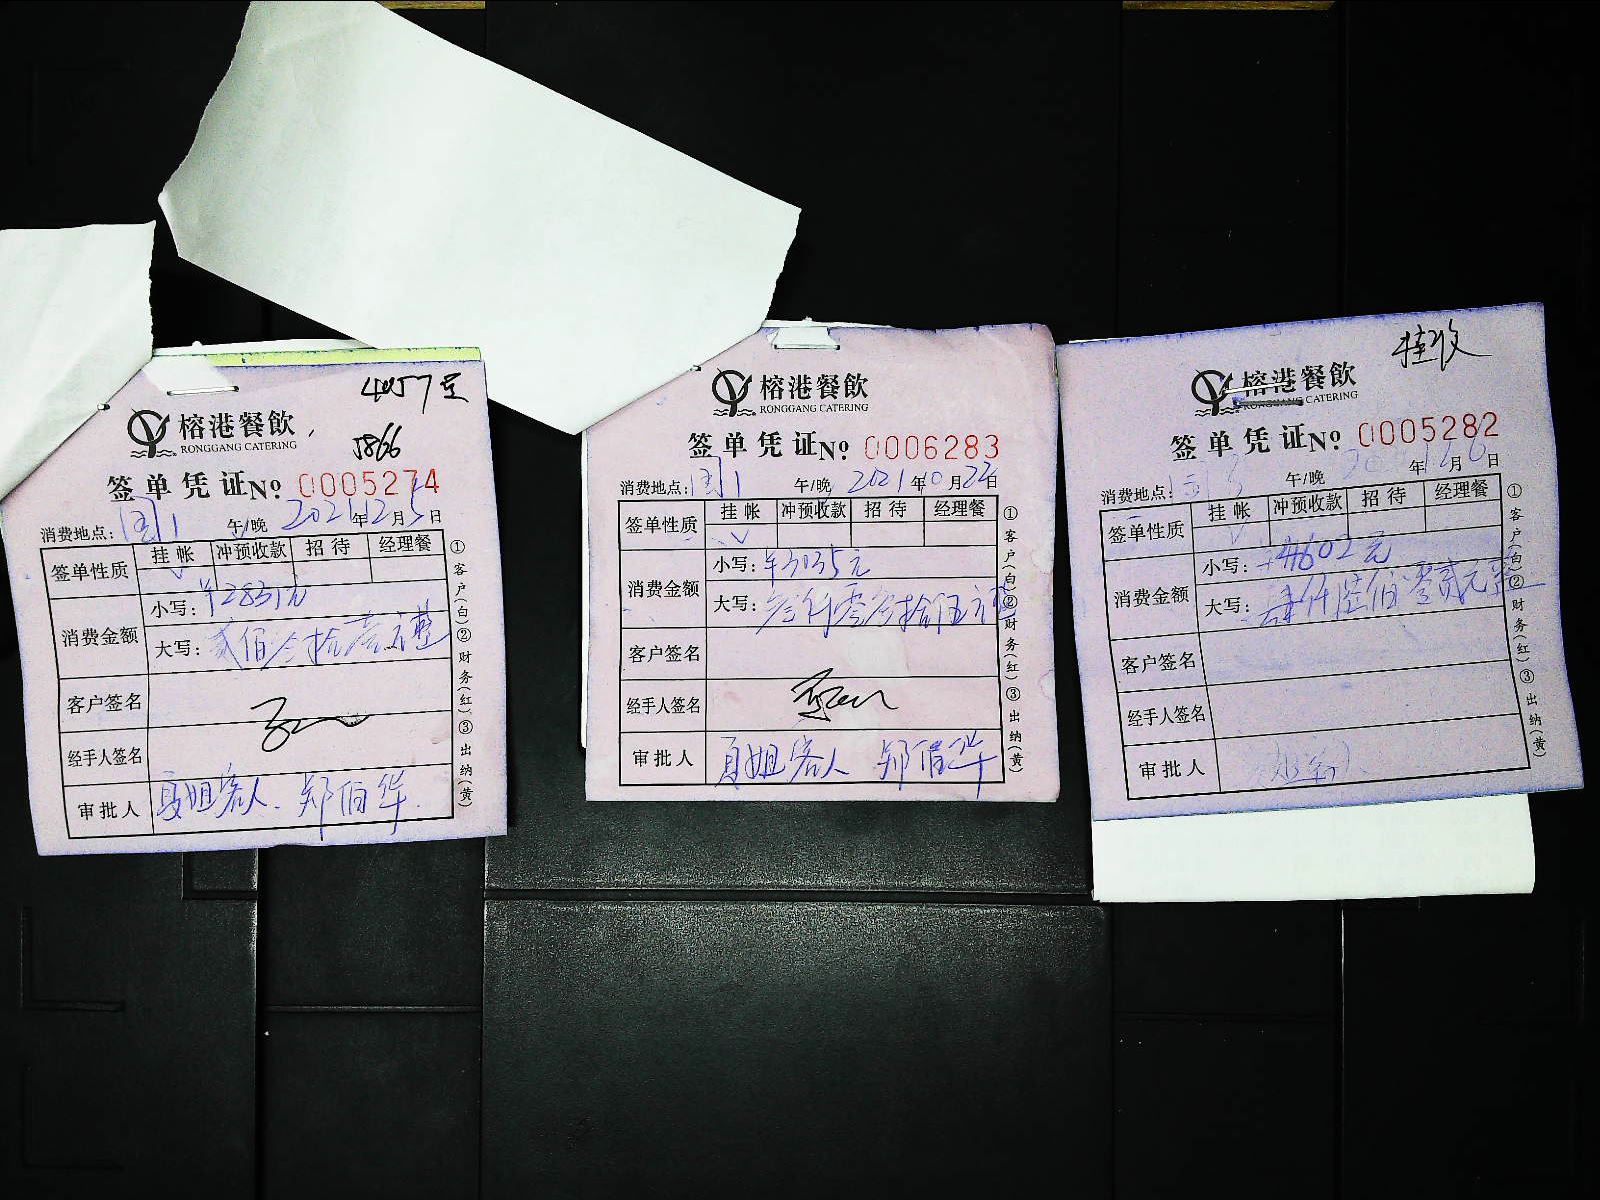 4057呈
榕港餐飲
RONGGANG CATERING
5866
签单凭证 No. 0005274
消费地点: 闰1 午/晚 2021年12月5日
签单性质 挂帐 冲预收款 招待 经理餐
√
消费金额
小写: ¥2831元
大写:
客户签名
经手人签名
审批人 夏姐客人. 郑伯华.
①客户(白)②财务(红)③出纳(黄)
榕港餐飲
RONGGANG CATERING
签单凭证 No. 0006283
消费地点: 闰1 午/晚 2021年10月22日
签单性质 挂帐 冲预收款 招待 经理餐
√
消费金额
小写: ¥3035元
大写: 叁仟零叁拾伍元整
客户签名
经手人签名
审批人 夏姐客人 郑倩华
①客户(白)②财务(红)③出纳(黄)
挂收
榕港餐飲
RONGGANG CATERING
签单凭证 No. 0005282
消费地点: 午/晚 年 月 日
签单性质 挂帐 冲预收款 招待 经理餐
√
消费金额
小写: ¥4602元
大写: 肆仟陆佰零贰元整
客户签名
经手人签名
审批人
①客户(白)②财务(红)③出纳(黄)